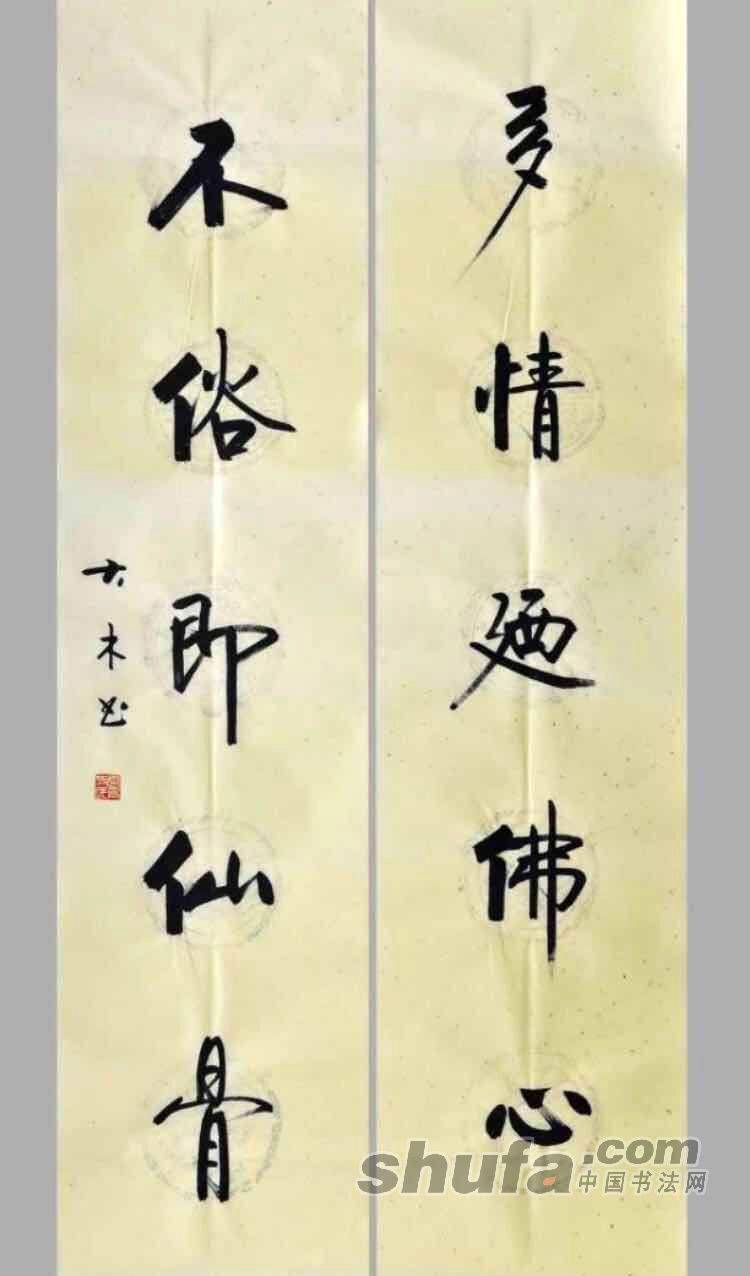 多情廼佛心
不俗即仙骨
木书
shufa.com
中国书法网